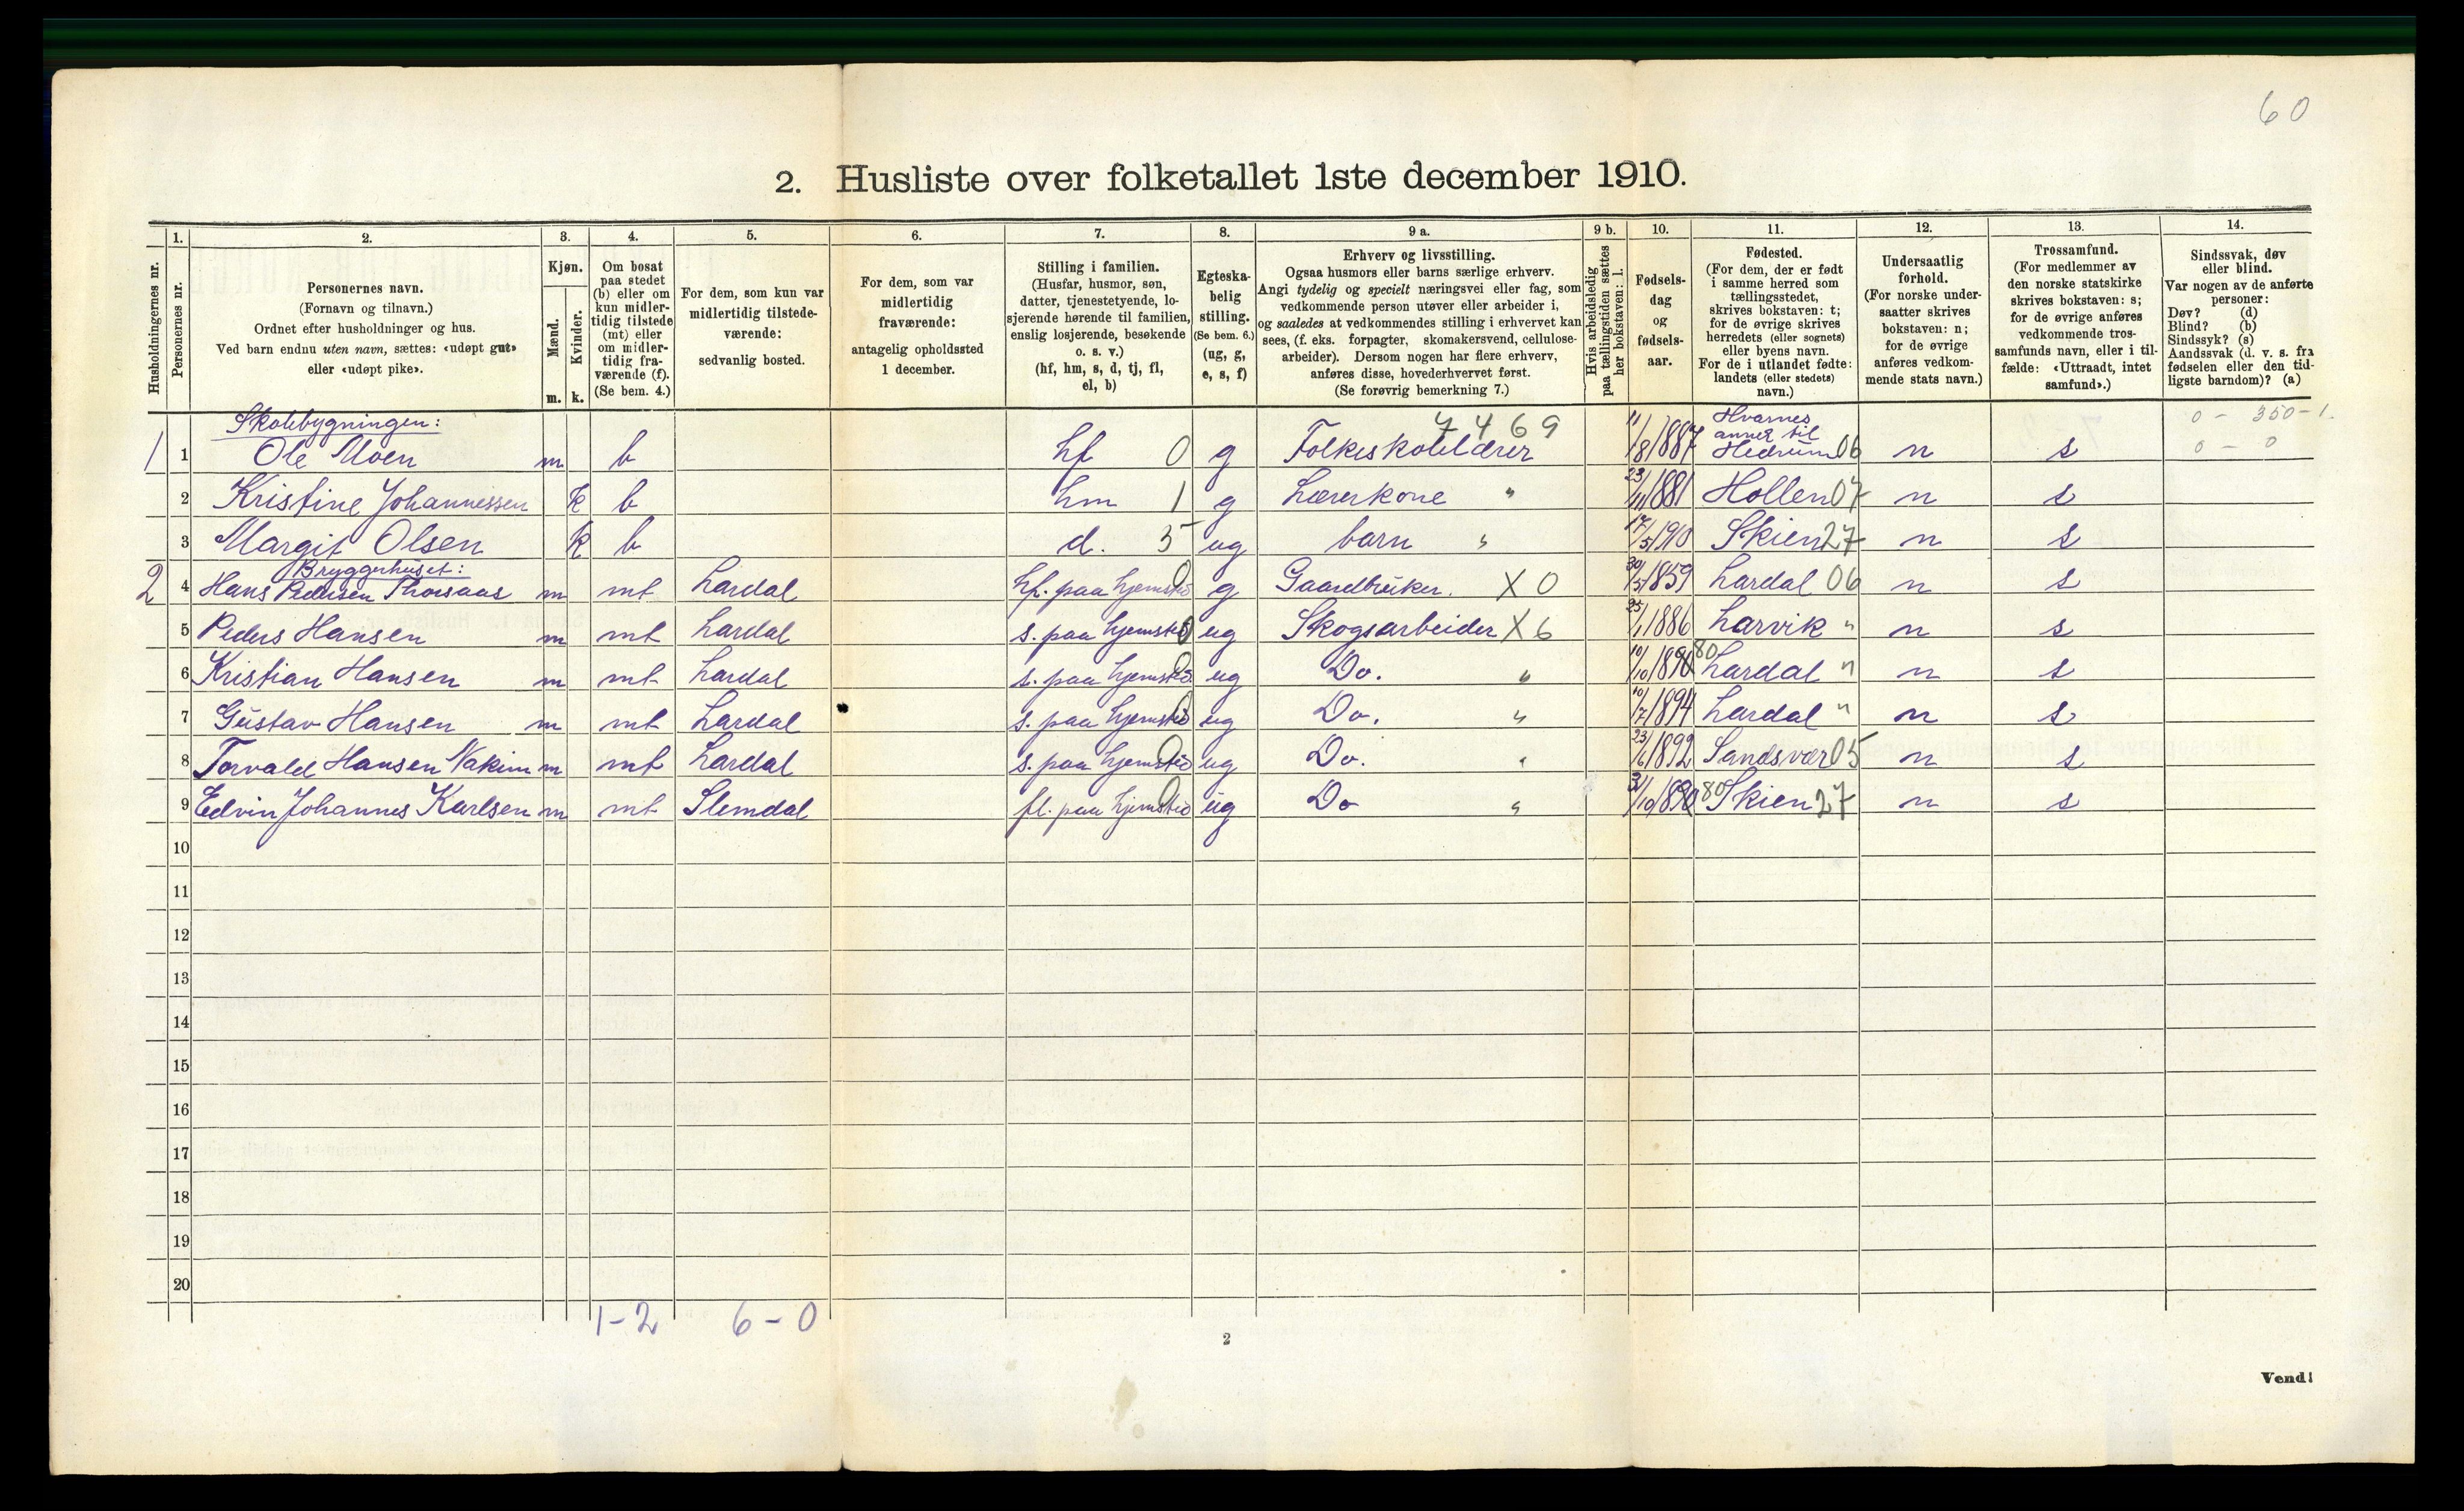 60
2. Husliste over folketallet 1ste december 1910.
Husholdningernes nr.
1.
Personernes nr.
2.
Personernes navn.
(Fornavn og tilnavn.)
Ordnet efter husholdninger og hus.
Ved barn endnu uten navn, sættes: «udøpt gut»
eller «udøpt pike».
3.
Kjøn.
Mænd.
Kvinder.
m. k.
4.
Om bosat
paa stedet
(b) eller om
kun midler-
tidig tilstede
(mt) eller
om midler-
tidig fra-
værende (f).
(Se bem. 4.)
5.
For dem, som kun var
midlertidig tilstede-
værende:
sedvanlig bosted.
6.
For dem, som var
midlertidig
fraværende:
antagelig opholdssted
1 december.
7.
Stilling i familien.
(Husfar, husmor, søn,
datter, tjenestetyende, lo-
sjerende hørende til familien,
enslig losjerende, besøkende
o. s. v.)
(hf, hm, s, d, tj, fl,
el, b)
8.
Egteska-
belig
stilling.
(Se bem. 6.)
(ug, g,
e, s, f)
9 a.
Erhverv og livsstilling.
Ogsaa husmors eller barns særlige erhverv.
Angi tydelig og specielt næringsvei eller fag, som
vedkommende person utøver eller arbeider i,
og saaledes at vedkommendes stilling i erhvervet kan
sees, (f. eks. forpagter, skomakersvend, cellulose-
arbeider). Dersom nogen har flere erhverv,
anføres disse, hovederhvervet først.
(Se forøvrig bemerkning 7.)
9 b.
Hvis arbeidsledig
paa tællingstiden sættes
her bokstaven: l.
10.
Fødsels-
dag
og
fødsels-
aar.
11.
Fødested.
(For dem, der er født
i samme herred som
tællingsstedet,
skrives bokstaven: t;
for de øvrige skrives
herredets (eller sognets)
eller byens navn.
For de i utlandet fødte:
landets (eller stedets)
navn.)
12.
Undersaatlig
forhold.
(For norske under-
saatter skrives
bokstaven: n;
for de øvrige
anføres vedkom-
mende stats navn.)
13.
Trossamfund.
(For medlemmer av
den norske statskirke
skrives bokstaven: s;
for de øvrige anføres
vedkommende tros-
samfunds navn, eller i til-
fælde: «Uttraadt, intet
samfund».)
14.
Sindssvak, døv
eller blind.
Var nogen av de anførte
personer:
Døv? (d)
Blind? (b)
Sindssyk? (s)
Aandssvak (d. v. s. fra
fødselen eller den tid-
ligste barndom)? (a)
Skolebygningen: 7469 Hvarnes 0 - 350-1.
1 1 Ole Moen m b hf 0 g Folkeskolelærer 11/8 1887 annex til Hedrum 06 n s 0 - 0
2 Kristine Johannessen k b hm 1 g Lærerkone " 23/11 1881 Hollen 07 n s
3 Margit Olsen k b d. 5 ug barn " 17/5 1910 Skien 27 n s
Bryggerhuset:
2 4 Hans Pedersen Thorsaas m mt Lardal hf. paa hjemsted 0 g Gaardbruker. X 0 30/5 1859 Lardal 06 n s
5 Peders Hansen m mt Lardal s. paa hjemsted 0 ug Skogsarbeider X 6 25/1 1886 Larvik " n s
6 Kristian Hansen m mt Lardal s. paa hjemsted 0 ug Do. " 10/10 1890 80 Lardal " n s
7 Gustav Hansen m mt Lardal s. paa hjemsted 0 ug Do. " 10/7 1894 Lardal " n s
8 Torvald Hansen Nakim m mt Lardal s. paa hjemsted 0 ug Do. " 23/6 1892 Sandsvær 05 n s
9 Edvin Johannes Karlsen m mt Slemdal fl. paa hjemsted 0 ug Do " 31/10 1890 80 Skien 27 n s
10
11
12
13
14
15
16
17
18
19
20
1-2 6-0
2
Vend!